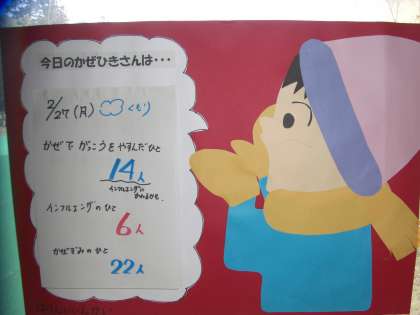 今日のかぜひきさんは・・・
2/27(月) くもり
かぜで がっこうを やすんだひと
14人
インフルエンザの ひと
6人
かぜぎみの ひと
22人